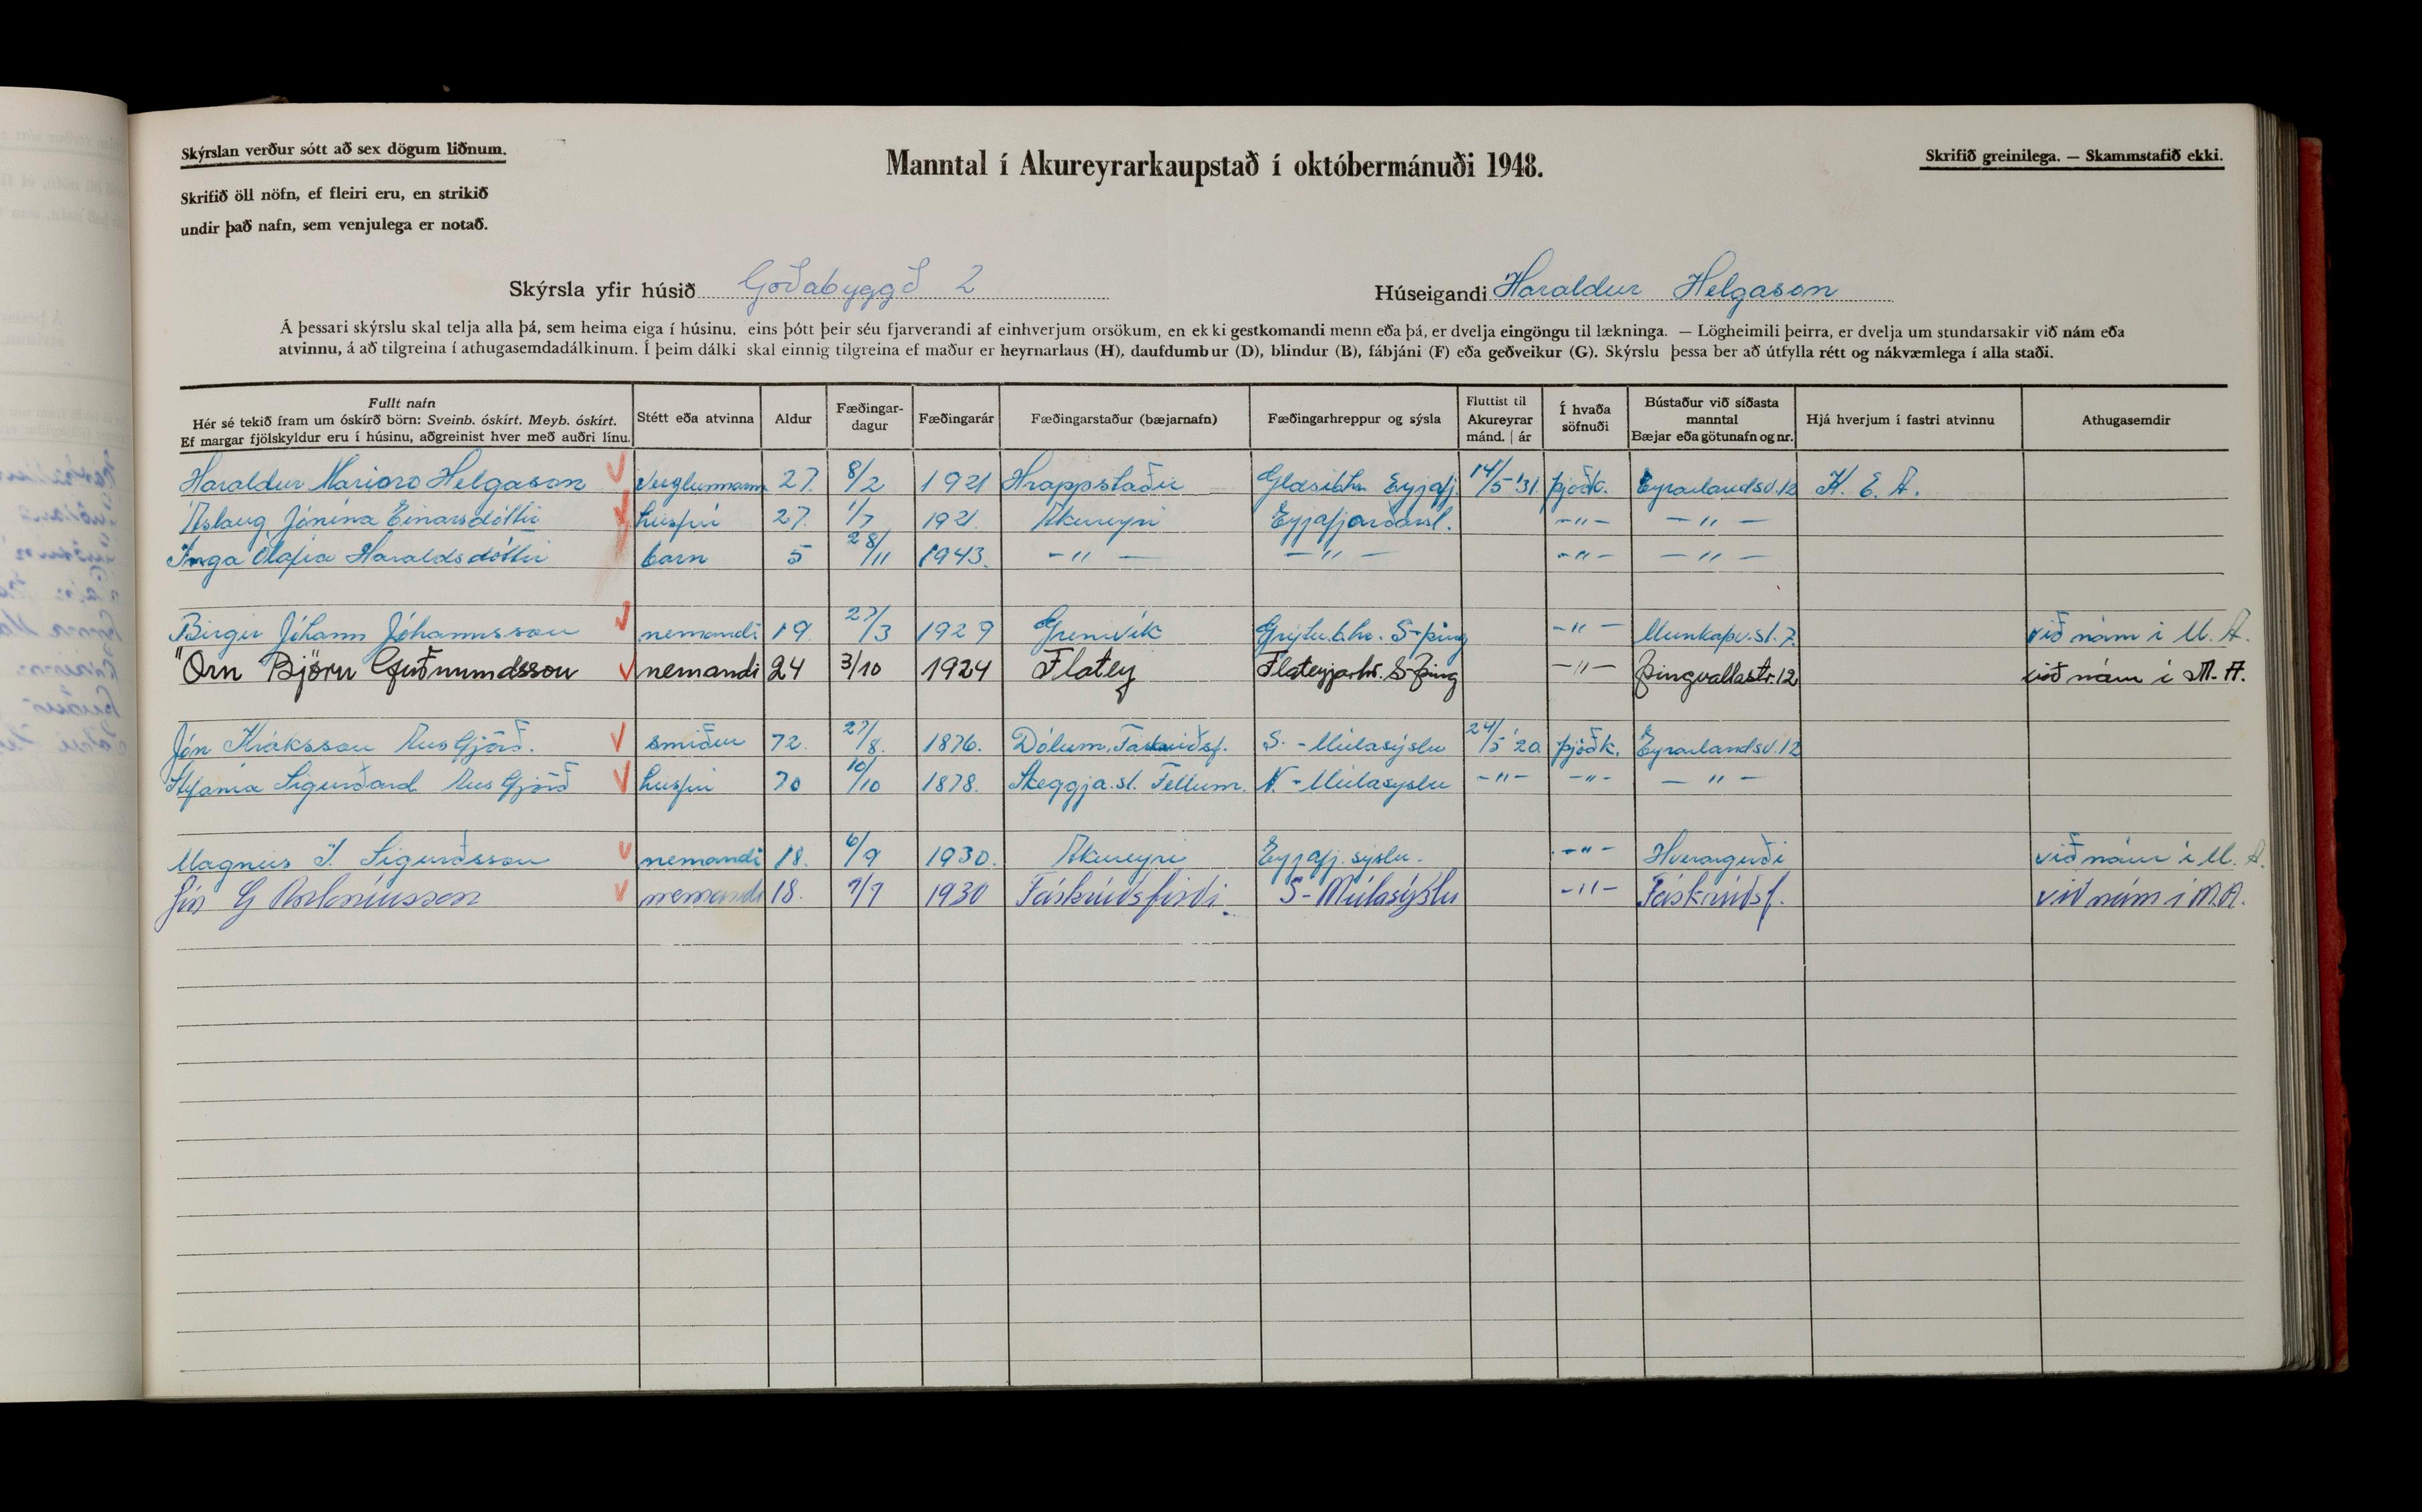 Skýrslan verður sótt að sex dögum liðnum.
Manntal í Akureyrarkaupstað í októbermánuði 1948.
Skrifið greinilega. — Skammstafið ekki.
Skrifið öll nöfn, ef fleiri eru, en strikið
undir það nafn, sem venjulega er notað.
Skýrsla yfir húsið Goðabyggð 2
Húseigandi Haraldur Helgason
Á þessari skýrslu skal telja alla þá, sem heima eiga í húsinu, eins þótt þeir séu fjarverandi af einhverjum orsökum, en ekki gestkomandi menn eða þá, er dvelja eingöngu til lækninga. — Lögheimili þeirra, er dvelja um stundarsakir við nám eða
atvinnu, á að tilgreina í athugasemdadálkinum. Í þeim dálki skal einnig tilgreina ef maður er heyrnarlaus (H), daufdumbur (D), blindur (B), fábjáni (F) eða geðveikur (G). Skýrslu þessa ber að útfylla rétt og nákvæmlega í alla staði.
Fullt nafn
Hér sé tekið fram um óskírð börn: Sveinb. óskírt. Meyb. óskírt.
Ef margar fjölskyldur eru í húsinu, aðgreinist hver með auðri línu.
Stétt eða atvinna
Aldur
Fæðingar-
dagur
Fæðingarár
Fæðingarstaður (bæjarnafn)
Fæðingarhreppur og sýsla
Fluttist til
Akureyrar
mánd. | ár
Í hvaða
söfnuði
Bústaður við síðasta
manntal
Bæjar eða götunafn og nr.
Hjá hverjum í fastri atvinnu
Athugasemdir
Haraldur Helgason verzlunarm 27. 8/2 1921 Hrappstaðir Glæsibhr. Eyjafj. 14/5 '31. þjóðk. Eyrarlandsv. 12 K. E. A.
Áslaug Jónína Einarsdóttir húsfrú 27. 1/7 1921. Akureyri Eyjafjarðarsl. -"- - " -
Inga Ólafía Haraldsdóttir barn 5 28/11 1943. - " - - " - -"- - " -
Birgir Jóhann Jóhannsson nemandi 19. 27/3 1929 Grenivík Grýtu.b.hr. S-þing -"- Munkaþv.st. 7. við nám í M. A.
Örn Björn Guðmundsson nemandi 24 3/10 1924 Flatey Flateyjarhr. S-Þing -"- Þingvallastr. 12 við nám í M. A.
Jón Kráksson smiður 72. 27/8. 1876. Dölum, S. - Múlasýslu 24/5 '20. þjóðk. Eyrarlandsv. 12
Stefanía Sigurðard húsfrú 70 10/10 1878. Skeggja.st. Fellum. N. - Múlasýslu -"- -"- - " -
Magnús Sigurðsson nemandi 18. 6/9 1930. Akureyri Eyjafj. sýslu. -"- Hveragerði við nám í M. A.
Jón G Antoníusson nemandi 18. 7/7 1930 Fáskrúðsfirði. S- Múlasýslu -"- Fáskrúðsf. við nám í M.A.